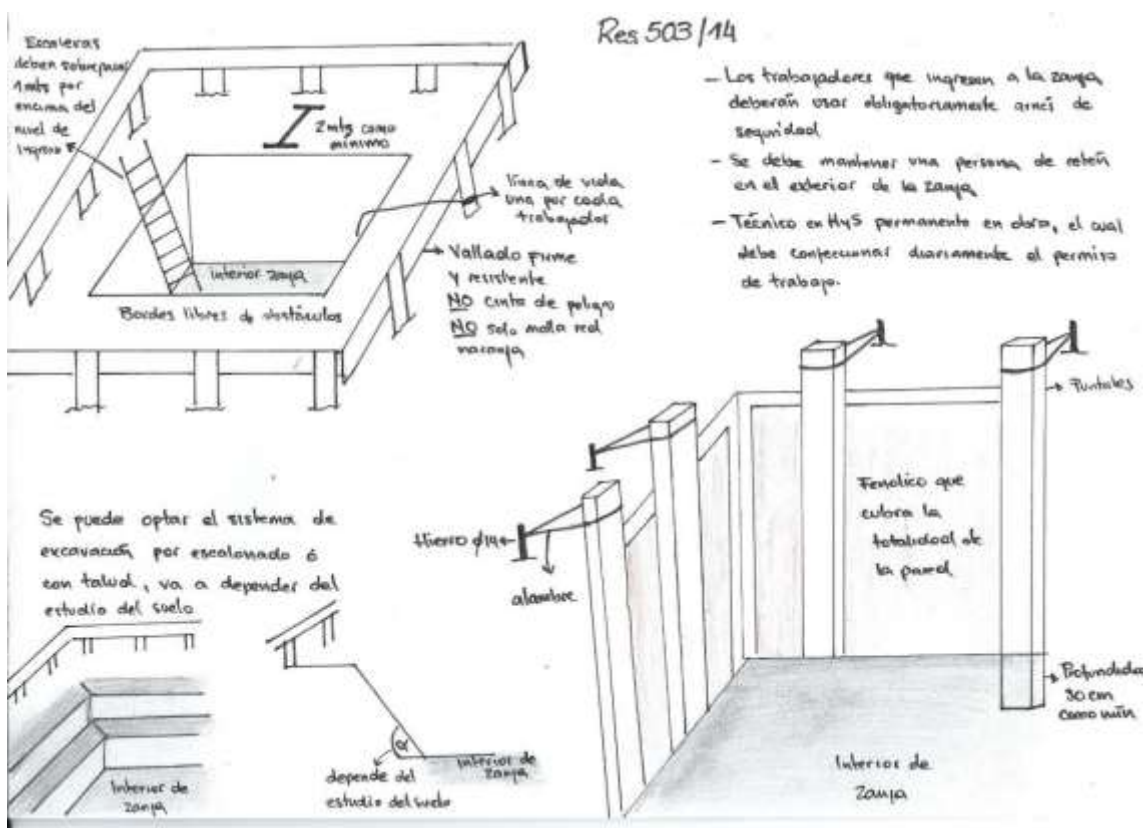 Res 503/14
Escaleras
deben sobrepasar
1 mts por
encima del
nivel de
Ingreso
2 mts como
mínimo
línea de vida
una por cada
trabajador
Vallado firme
y resistente
NO cinta de peligro
NO solo malla red
naranja
interior zanja
Bordes libres de obstáculos
- Los trabajadores que ingresen a la zanja
deberán usar obligatoriamente arnés de
seguridad
- Se debe mantener una persona de retén
en el exterior de la zanja
- Técnico en HyS permanente en obra, el cual
debe confeccionar diariamente el permiso
de trabajo.
Se puede optar el sistema de
excavación por escalonado ó
con talud, va a depender del
estudio del suelo
Interior de
zanja
α
depende del
estudio del suelo
interior de
zanja
Hierro ϕ14
alambre
Puntales
Fenolico que
cubra la
totalidad de
la pared
Profundidad
30 cm
como mín
Interior de
zanja